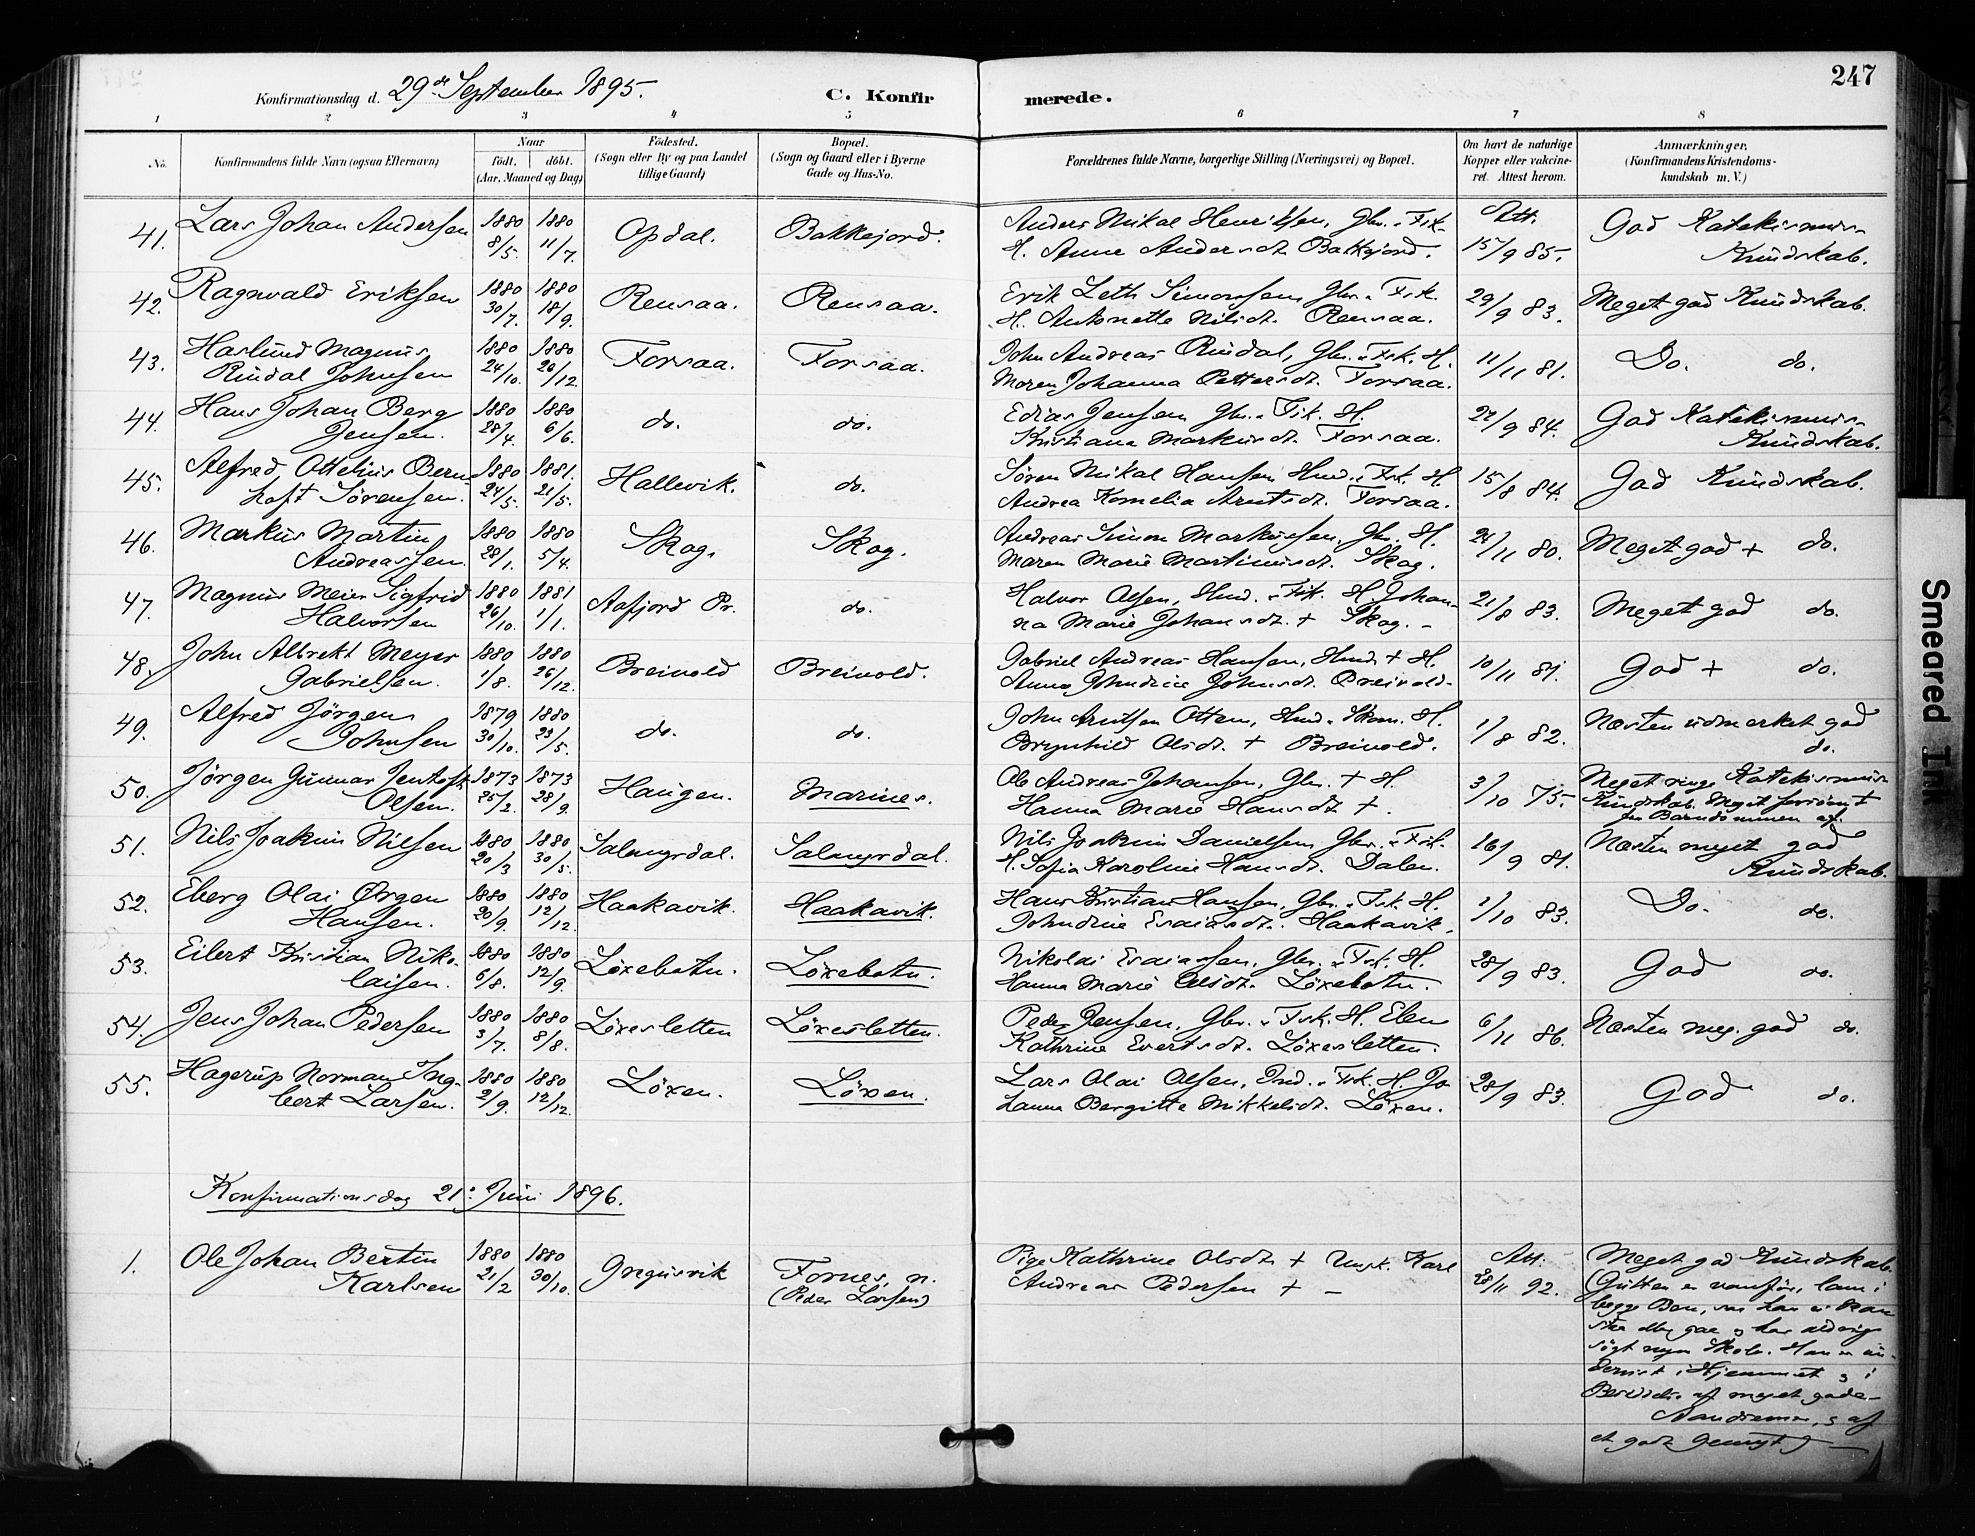 247
Konfirmationsdag d. 29de September 1895.
C. Konfirmerede.
1 2 3 4 5 6 7 8
No. Konfirmandens fulde Navn (ogsaa Efternavn) Naar født. døbt. (Aar, Maaned og Dag) Fødested. (Sogn eller By og paa Landet tillige Gaard) Bopæl. (Sogn og Gaard eller i Byerne Gade og Hus-No. Forældrenes fulde Navne, borgerlige Stilling (Næringsvei) og Bopæl. Om havt de naturlige Kopper eller vakcineret. Attest herom. Anmærkninger. (Konfirmandens Kristendomskundskab m. V.)
41. Lars Johan Andersen 1880 8/5. 1880 11/7. Opdal. Bakkejord. Anders Nikal Henriksen, Gbr. & Fisk. H. Anne Andersdt. Bakkejord. Att. 15/9 85. God Katekismus-Kundskab.
42. Ragnvald Eriksen 1880 30/7. 1880 18/9. Rensaa. Rensaa. Erik Leth Simonsen, Gbr. & Fsk. H. Antonette Nilsdt. Rensaa. 29/9 83. Meget god Kundskab.
43. Haslund Magnus Rindal Johnsen 1880 24/10. 1880 26/12 Forsaa. Forsaa. John Andreas Rindal, Gbr. & Fsk. H. Maren Johanna Pettersdt. Forsaa. 11/11 81. Do. do.
44. Hans Johan Berg Jensen. 1880 28/4. 1880 6/6. do. do. Edias Jensen Gbr. & Fsk. H. Kristiana Markusdt. Forsaa. 27/9 84. God Katekismus-Kundskab.
45. Alfred Ottelius Bernhoft Sørensen. 1880 24/5. 1881. 21/5. Hallevik. do. Søren Nikal Hansen Hmd. & Fsk. H. Andrea Kornelia Arntsdt. Forsaa. 15/8 84. God Kundskab.
46. Markus Martin Andreassen. 1880 28/1. 1880 5/4. Skog. Skog. Andreas Simon Markussen, Gbr. H. Maren Marie Martinusdt. Skog. 24/11 80. Meget god + do.
47. Magnus Meier Sigfrid Halvorsen 1880 26/10. 1881 1/1. Aafjord Pr. do. Halvor Olsen, Hmd. & Fsk. H. Johanna Marie Johansdt. + Skog. - 21/8 83. Meget god do.
48. John Albrekt Meyer Gabrielsen. 1880 1/8. 1880 26/12. Breivold Breivold. Gabriel Andreas Hansen, Hmd. + H. Anna Johndine Johnsdt. Breivold. 10/11 81. God + do.
49. Alfred Jørgen Johnsen 1879 30/10. 1880 23/5. do. do. John Arntsen Otten, Hmd. & Skom. H. Brynhild Olsdt. + Breivold. 1/8 82. Næsten udmerket god do.
50. Jørgen Gunnar Jentoft Olsen. 1873 25/2. 1873 28/9. Haugen. Marines. Ole Andreas Johansen, Gbr. + H. Hanna Marie Hansdt +. 3/10 75. Meget ringe Katekismus Kundskab. Meget forsømt fra Barndommen af.
51. Nils Joakim Nilsen 1880 20/3 1880 30/5. Salangsdal. Salangsdal. Nils Joakim Danielsen Gbr. & Fsk. H. Sofia Karoline Hansdt. Dalen. 16/9 81. Næsten meget god Kundskab.
52. Eberg Olai Ørgen Hansen. 1880 20/9. 1880 12/12. Haakavik. Haakavik. Hans Kristian Hansen, Gbr. & Fsk. H. Johndine Esaiasdt. Haakavik. 1/10 83. Do. do.
53. Eilert Kristian Nikolaisen. 1880 6/8. 1880 12/9. Löxebotn. Löxebotn. Nikolai Esaiassen, Gbr. & Fsk. H. Hanna Marie Olsdt. Löxebotn. 28/9 83. God do.
54. Jens Johan Pedersen 1880 3/7. 1880 8/8. Löxesletten Löxesletten. Peder Jensen, Gbr. & Fsk. H. Elen Kathrine Evertsdt. Löxesletten. 6/11 86. Næsten meg. god do.
55. Hagerup Norman Ingbert Larsen. 1880 2/9. 1880 12/12. Löxen. Löxen. Lars Olai Olsen, Ind. & Fsk. H. Johanna Bergitte Mikkelsdt. Löxen. 28/9 83. God do.
Konfirmationsdag 21: Juni 1896.
1. Ole Johan Bertin Karlsen 1880 21/2 1880 30/10. Gregusvik Fornes, n. (Peder Larsen) Pige Kathrine Olsdt + Ungk. Karl Andreas Pedersen + - Att. 28/11 92. Meget god Kundskab.
(Gutten er vanfør, lam i
begge Ben, saa han ei kan
staa eller gaa og har aldrig
søgt nogen Skole. Han er un-
dervist i Hjemmet og i
Besiddelse af meget gode
Aandsevner, og af
et godt Gemyt)
Smeared Ink